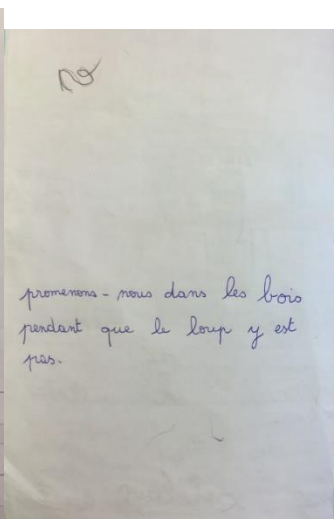 promenons-nous dans les bois
pendant que le loup y est
pas.